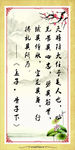 天将降大任于斯人也，必
先苦其心志，劳其筋骨，
饿其体肤，空乏其身，行
拂乱其所为。
——《孟子·告子下》